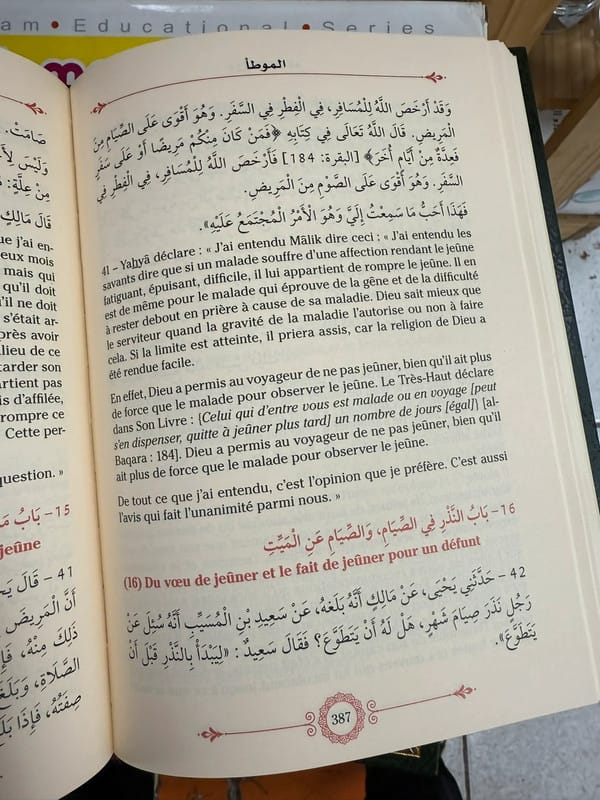 am • Educational • Series
الموطأ
وَقَدْ أَرْخَصَ اللَّهُ لِلْمُسَافِرِ، فِي الْفِطْرِ فِي السَّفَرِ. وَهُوَ أَقْوَى عَلَى الصِّيَامِ مِنَ
الْمَرِيضِ. قَالَ اللَّهُ تَعَالَى فِي كِتَابِهِ ﴿فَمَنْ كَانَ مِنْكُمْ مَرِيضًا أَوْ عَلَى سَفَرٍ
فَعِدَّةٌ مِنْ أَيَّامٍ أُخَرَ﴾ [البقرة: 184] فَأَرْخَصَ اللَّهُ لِلْمُسَافِرِ، فِي الْفِطْرِ فِي
السَّفَرِ. وَهُوَ أَقْوَى عَلَى الصَّوْمِ مِنَ الْمَرِيضِ.
فَهَذَا أَحَبُّ مَا سَمِعْتُ إِلَيَّ وَهُوَ الْأَمْرُ الْمُجْتَمَعُ عَلَيْهِ».
41 – Yahyā déclare : « J'ai entendu Mālik dire ceci : « J'ai entendu les
savants dire que si un malade souffre d'une affection rendant le jeûne
fatiguant, épuisant, difficile, il lui appartient de rompre le jeûne. Il en
est de même pour le malade qui éprouve de la gêne et de la difficulté
à rester debout en prière à cause de sa maladie. Dieu sait mieux que
le serviteur quand la gravité de la maladie l'autorise ou non à faire
cela. Si la limite est atteinte, il priera assis, car la religion de Dieu a
été rendue facile.
En effet, Dieu a permis au voyageur de ne pas jeûner, bien qu'il ait plus
de force que le malade pour observer le jeûne. Le Très-Haut déclare
dans Son Livre : {Celui qui d'entre vous est malade ou en voyage [peut
s'en dispenser, quitte à jeûner plus tard] un nombre de jours [égal]} [al-
Baqara : 184]. Dieu a permis au voyageur de ne pas jeûner, bien qu'il
ait plus de force que le malade pour observer le jeûne.
De tout ce que j'ai entendu, c'est l'opinion que je préfère. C'est aussi
l'avis qui fait l'unanimité parmi nous. »
16- بَابُ النَّذْرِ فِي الصِّيَامِ، وَالصِّيَامِ عَنِ الْمَيِّتِ
(16) Du vœu de jeûner et le fait de jeûner pour un défunt
42 – حَدَّثَنِي يَحْيَى، عَنْ مَالِكٍ أَنَّهُ بَلَغَهُ، عَنْ سَعِيدِ بْنِ الْمُسَيِّبِ أَنَّهُ سُئِلَ عَنْ
رَجُلٍ نَذَرَ صِيَامَ شَهْرٍ، هَلْ لَهُ أَنْ يَتَطَوَّعَ؟ فَقَالَ سَعِيدٌ: «لِيَبْدَأْ بِالنَّذْرِ قَبْلَ أَنْ
يَتَطَوَّعَ».
387